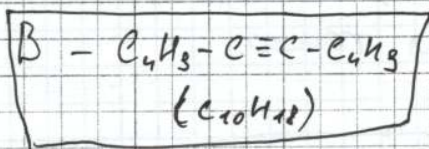 B – C₄H₉-C≡C-C₄H₉
(C₁₀H₁₈)